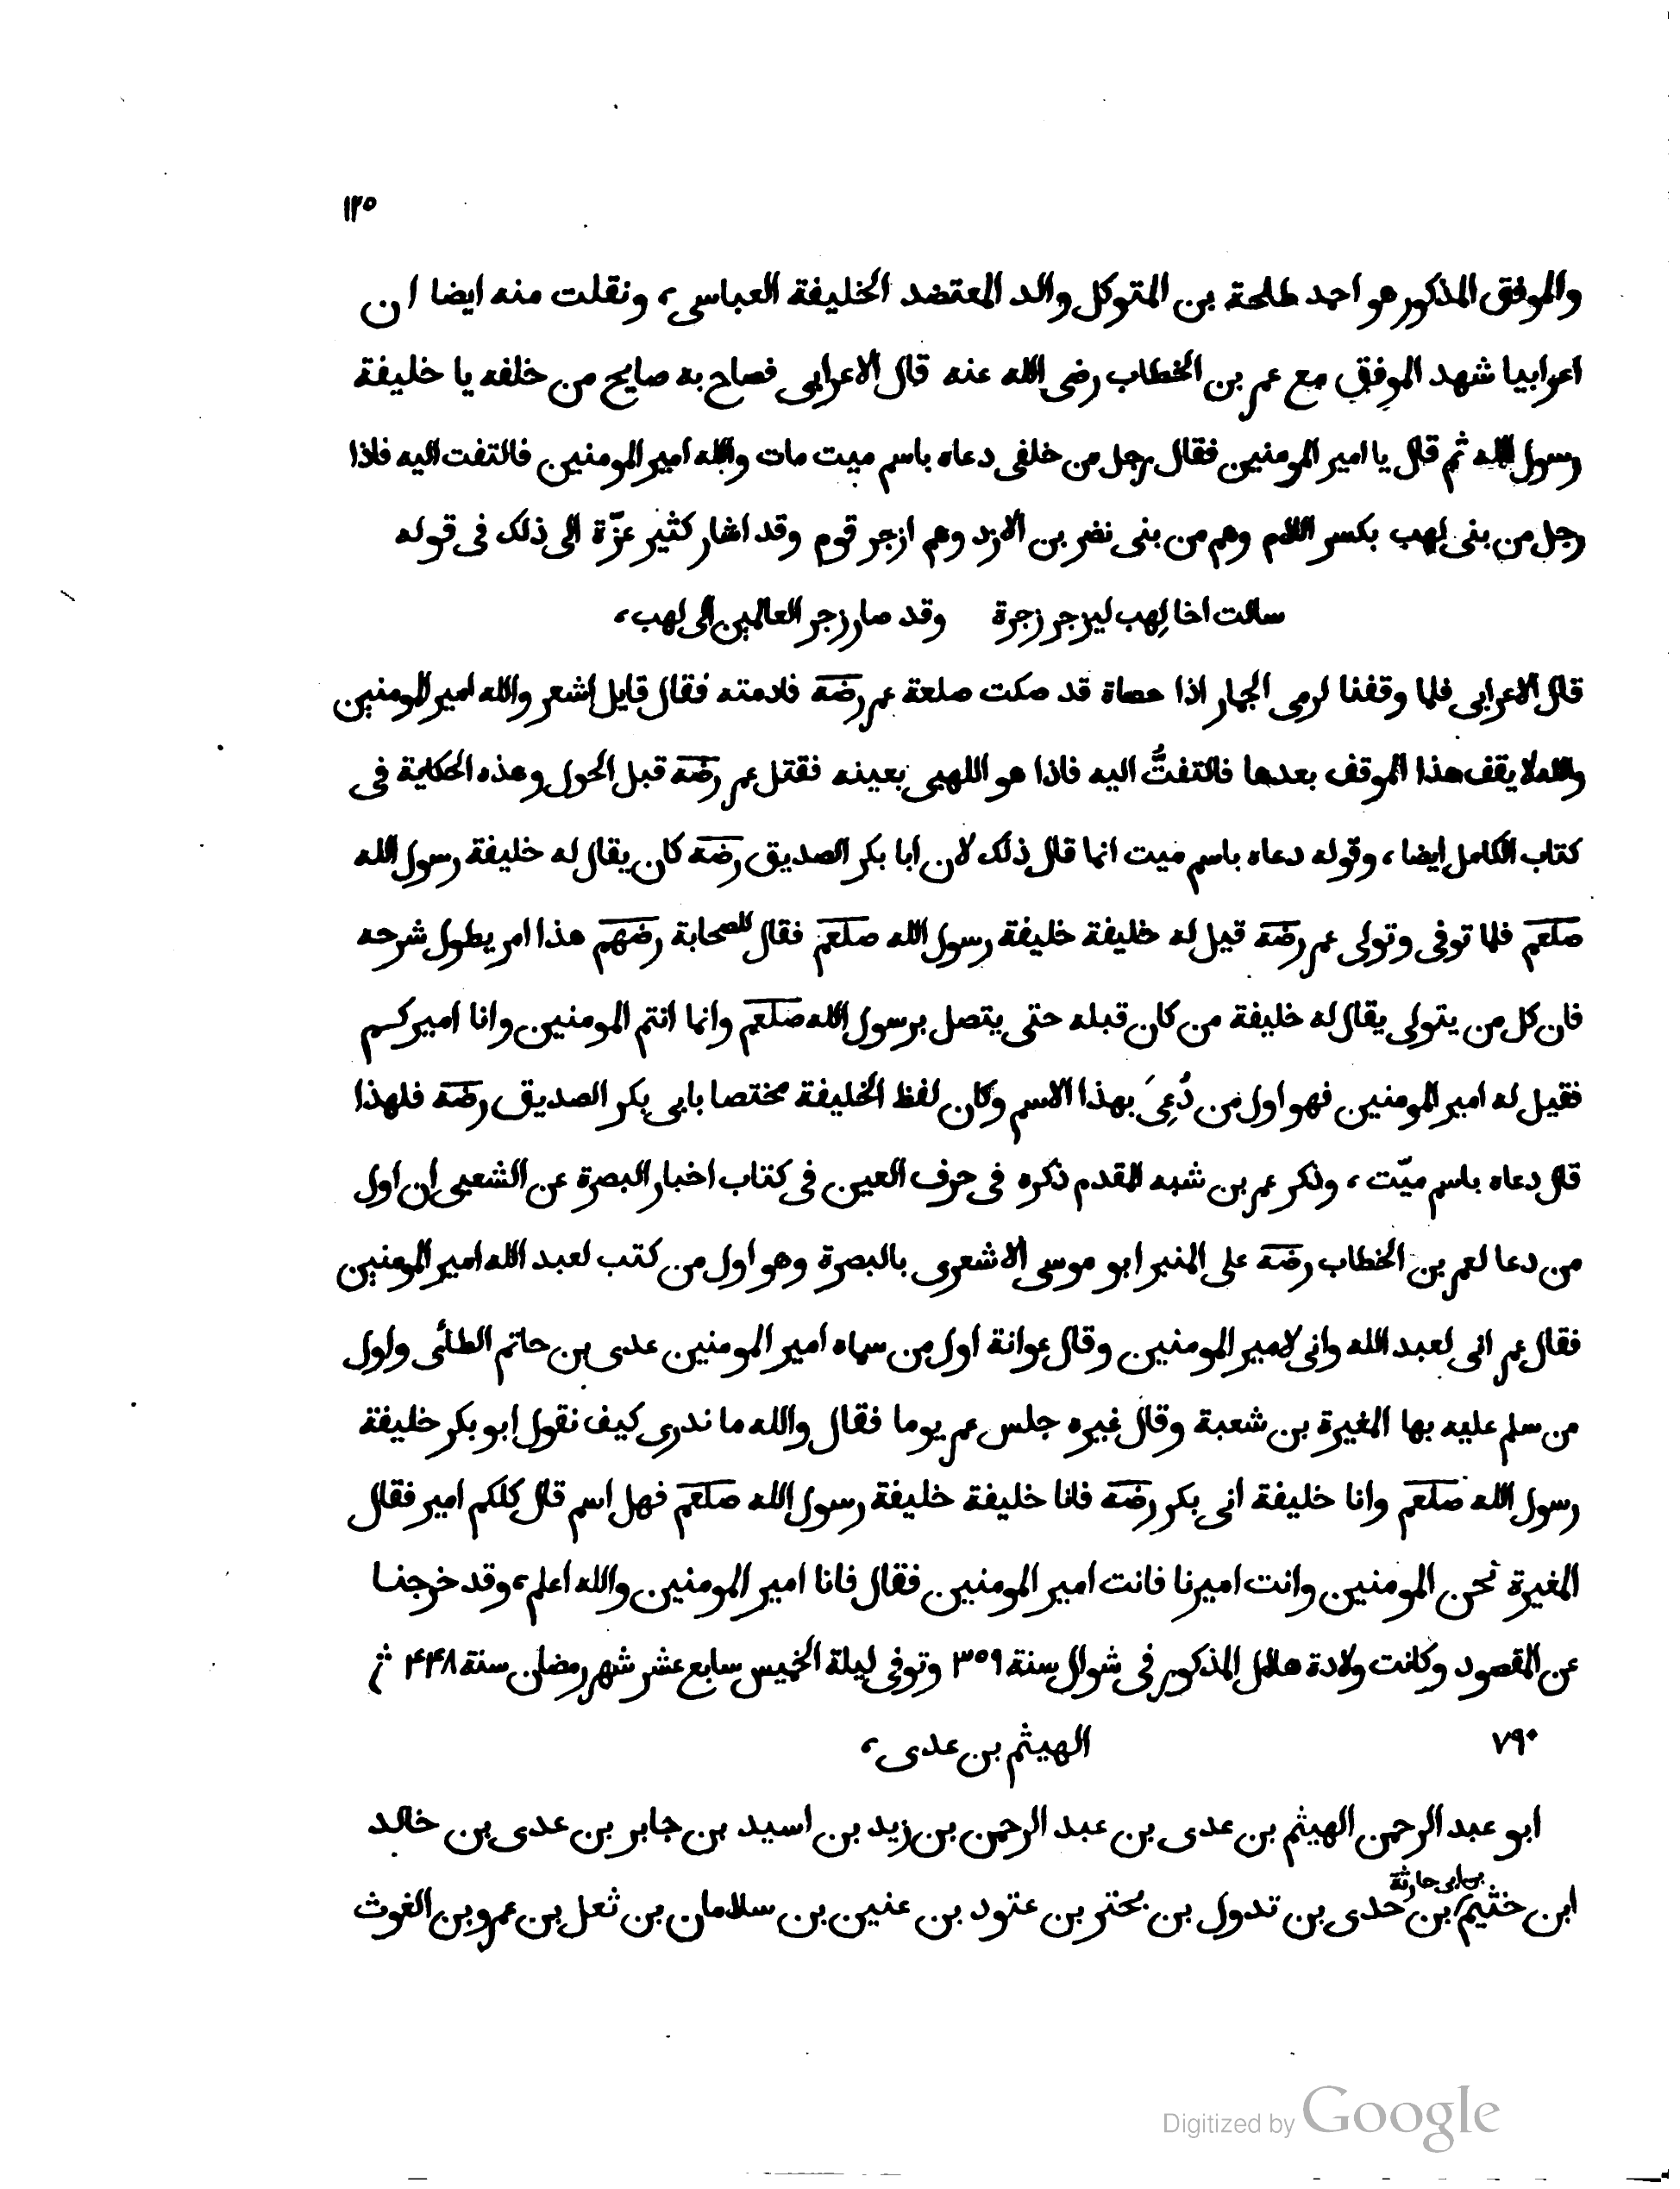 ١٢٥
والموفق المذكور هو احمد طلحة بن المتوكل والد المعتضد الخليفة العباسى، ونقلت منه ايضا ان
اعرابيا شهد الموفق مع عمر بن الخطاب رضى الله عنه قال الاعرابى فصاح به صايح من خلفه يا خليفة
رسول الله ثم قال يا امير المومنين فقال رجل من خلفى دعاه باسم ميت مات والله امير المومنين فالتفت اليه فاذا
رجل من بنى لهب بكسر اللام وهم من بنى نضر بن الازد وهم ازجر قوم وقد اشار كثير عزّة الى ذلك فى قوله
سالت اخا لِهب ليزجر زجرة وقد صار زجر العالمين الى لهب،
قال الاعرابى فلما وقفنا لرمى الجمار اذا حصاة قد صكت صلعة عمر رضه فادمته فقال قايل اشعر والله امير المومنين
والله لا يقف هذا الموقف بعدها فالتفتُّ اليه فاذا هو اللهبى بعينه فقتل عمر رضه قبل الحول وهذه الحكاية فى
كتاب الكامل ايضا، وقوله دعاه باسم ميت انما قال ذلك لان ابا بكر الصديق رضه كان يقال له خليفة رسول الله
صلعم فلما توفى وتولى عمر رضه قيل له خليفة خليفة رسول الله صلعم فقال للصحابة رضهم هذا امر يطول شرحه
فان كل من يتولى يقال له خليفة من كان قبله حتى يتصل برسول الله صلعم وانما انتم المومنين وانا اميركم
فقيل له امير المومنين فهو اول من دُعِىَ بهذا الاسم وكان لفظ الخليفة مختصا بابى بكر الصديق رضه فلهذا
قال دعاه باسم ميّت، وذكر عمر بن شبه المقدم ذكره فى حرف العين فى كتاب اخبار البصرة عن الشعبى ان اول
من دعا لعمر بن الخطاب رضه على المنبر ابو موسى الاشعرى بالبصرة وهو اول من كتب لعبد الله امير المومنين
فقال عمر انى لعبد الله وانى لامير المومنين وقال عوانة اول من سماه امير المومنين عدى بن حاتم الطائى واول
من سلم عليه بها المغيرة بن شعبة وقال غيره جلس عمر يوما فقال والله ما ندرى كيف نقول ابو بكر خليفة
رسول الله صلعم وانا خليفة انى بكر رضه فانا خليفة خليفة رسول الله صلعم فهل اسم قال كلكم امير فقال
المغيرة نحن المومنين وانت اميرنا فانت امير المومنين فقال فانا امير المومنين والله اعلم، وقد خرجنا
عن المقصود وكانت ولادة هلال المذكور فى شوال سنة ٣٥٩ وتوفى ليلة الخميس سابع عشر شهر رمضان سنة ٤٤٨
٧٩٠ الهيثم بن عدى،
ابو عبد الرحمن الهيثم بن عدى بن عبد الرحمن بن زيد بن اسيد بن جابر بن عدى بن خالد
بن ابى حارثة
ابن خثيم بن حدى بن تدول بن بحتر بن عتود بن عنين بن سلامان بن ثعل بن عمرو بن الغوث
Digitized by Google